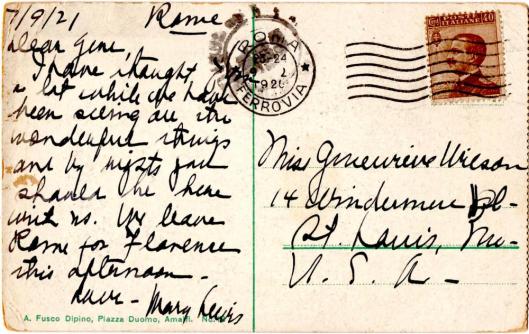 7/9/21 Rome
Dear Gene,
I have thought
a lot while we have
been seeing all the
wonderful things
and by rights you
should be here
with us. We leave
Rome for Florence
this afternoon -
Love - Mary Lewis
A. Fusco Dipino, Piazza Duomo, Amalfi.
ROMA
FERROVIA
ITALIANE 40
Miss Genevieve Wilson
14 Windermere Pl-
St. Louis, Mo-
U. S. A -